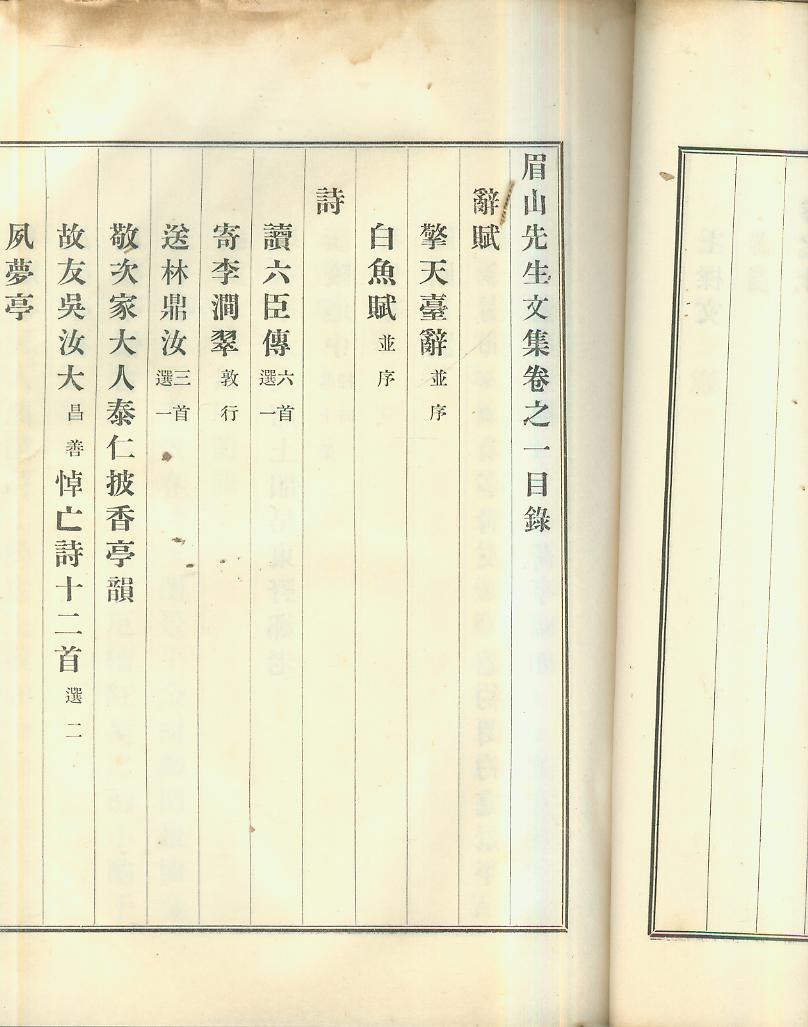 眉山先生文集卷之一目錄
辭賦
擎天臺辭並序
白魚賦並序
詩
讀六臣傳六首選一
寄李澗翠敦行
送林鼎汝三首選一
敬次家大人泰仁披香亭韻
故友吳汝大昌善悼亡詩十二首選二
夙夢亭